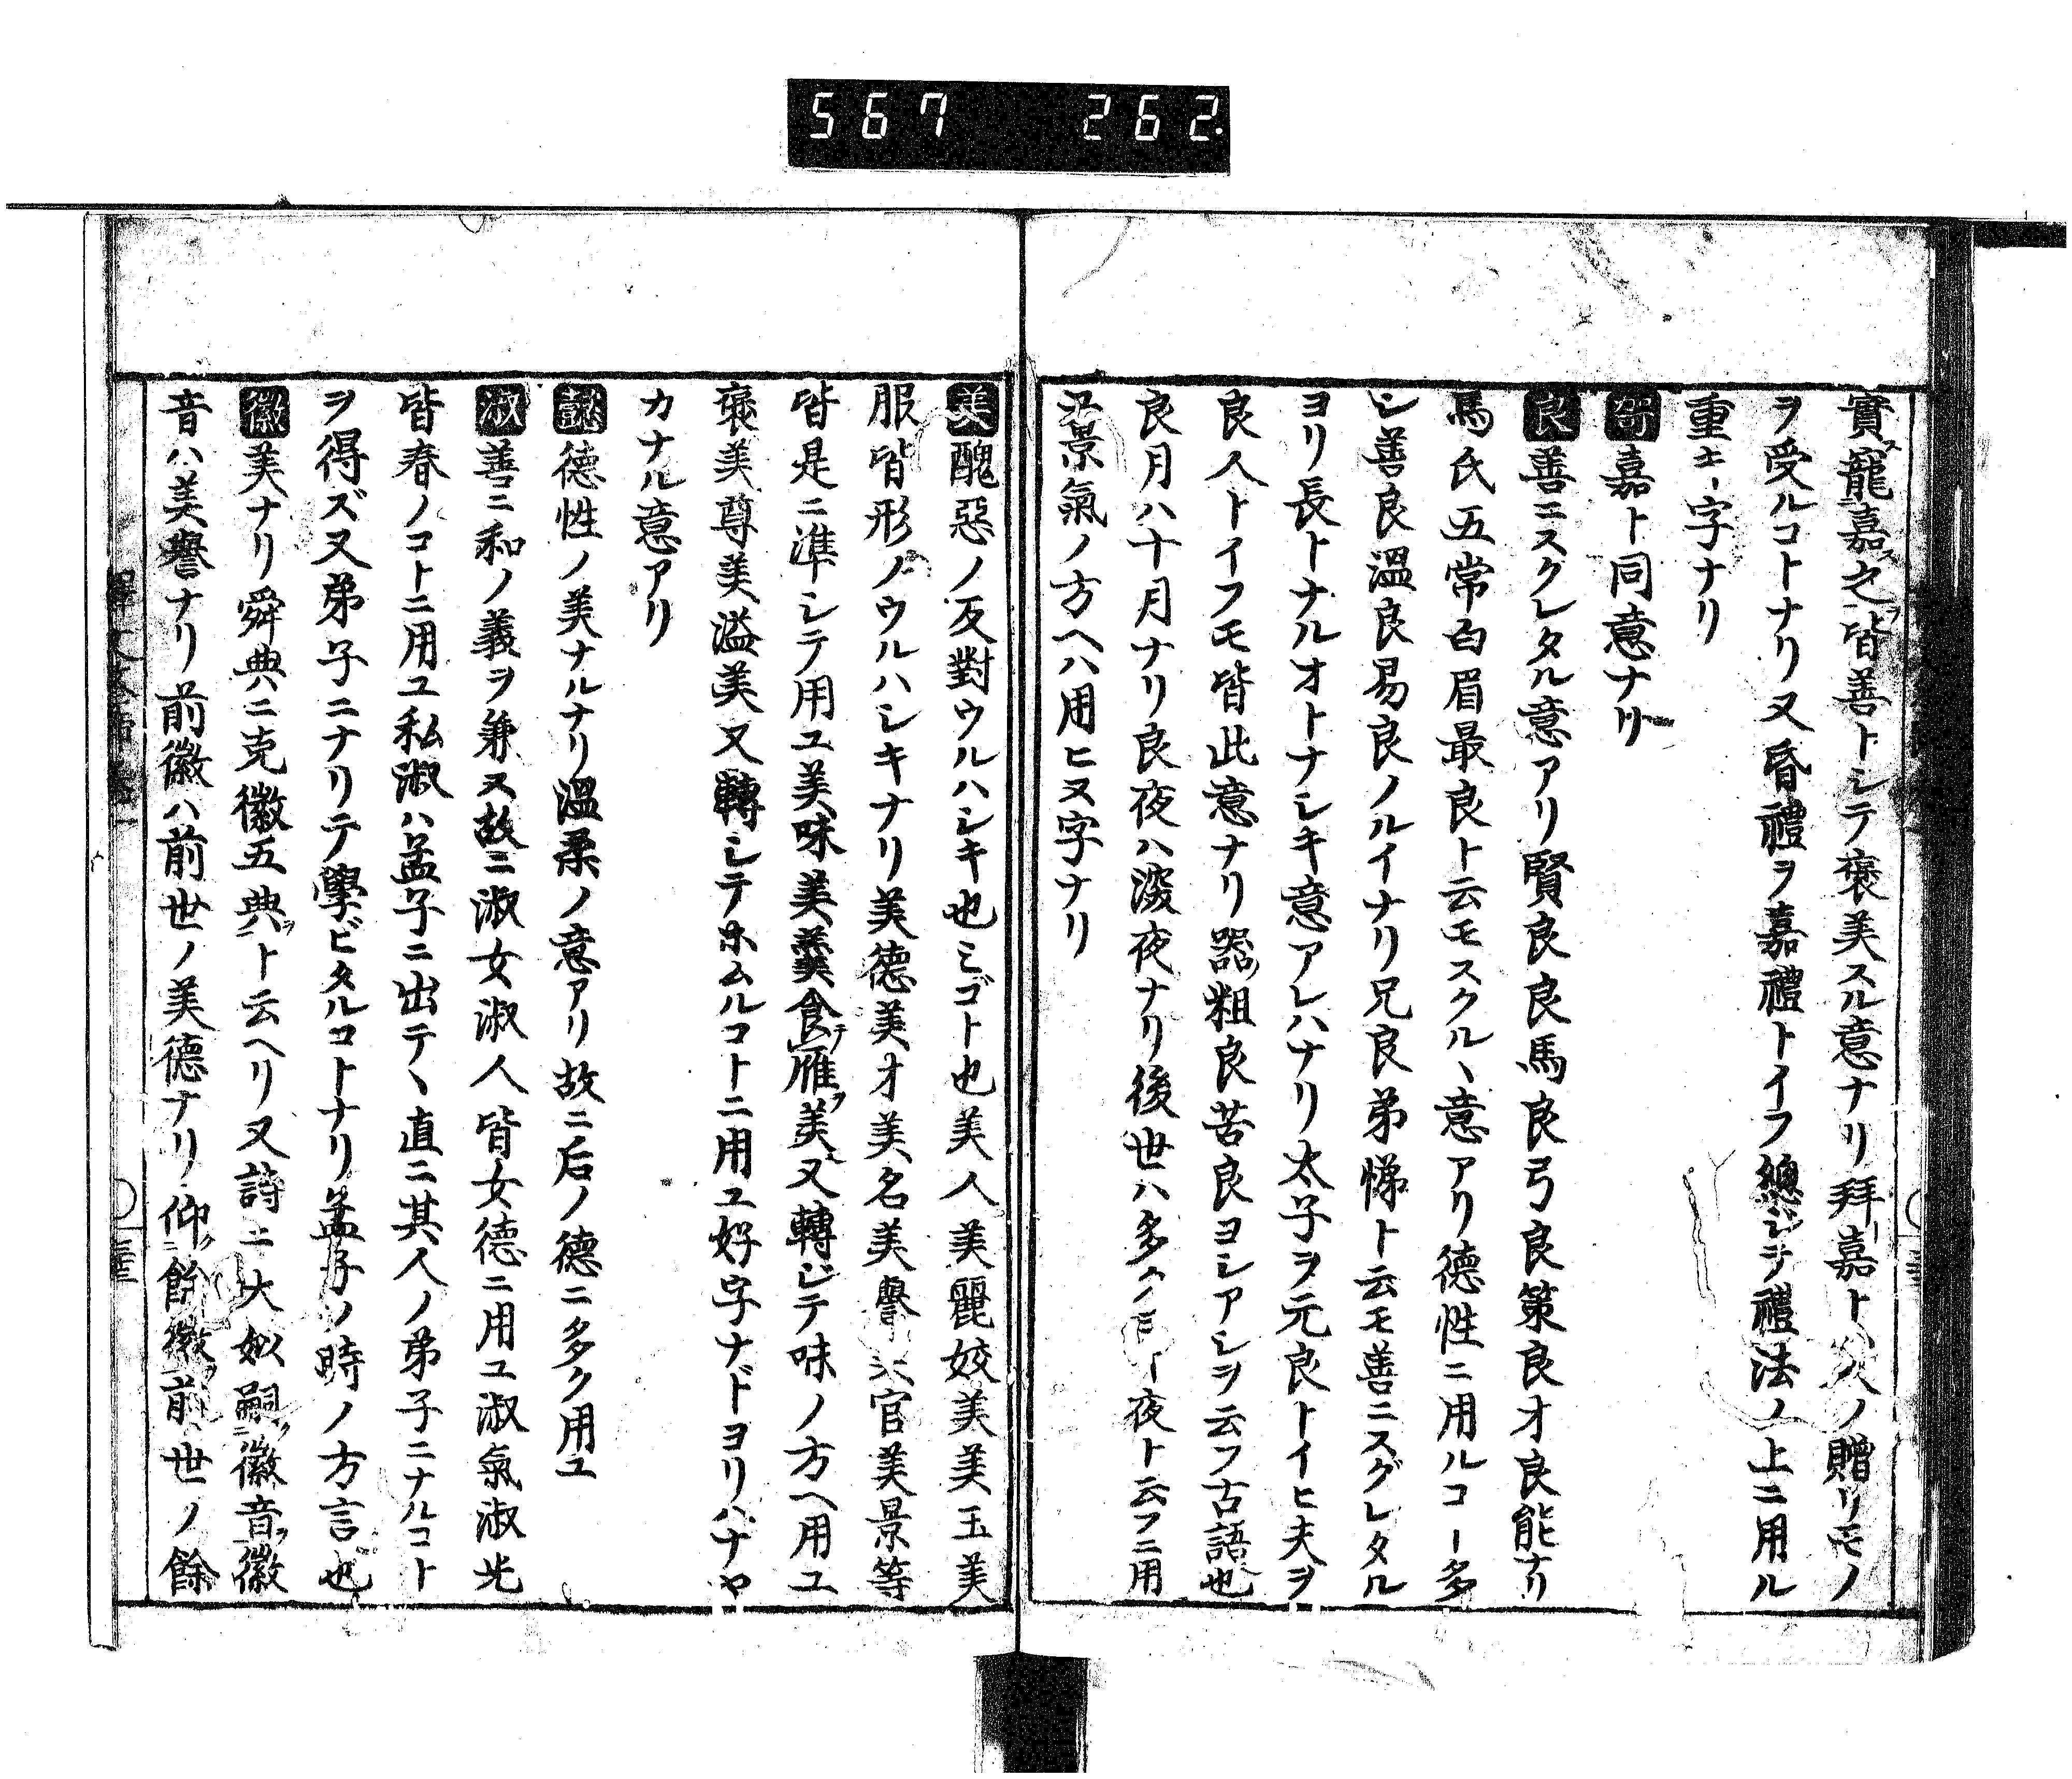 567 262.
實寵嘉之皆善トシテ褒美スル意ナリ拜嘉ト人ノ贈リモノ
ヲ受ルコトナリ又昏禮ヲ嘉禮トイフ總ジテ禮法ノ上ニ用ル
重キ字ナリ
哿嘉ト同意ナリ
良善ニスクレタル意アリ賢良良馬良弓良策良才良能ナリ
馬氏五常白眉最良ト云モスクルヽ意アリ德性ニ用ルコー多
シ善良溫良易良ノルイナリ兄良弟悌ト云モ善ニスグレタル
ヨリ長トナルオトナシキ意アレハナリ太子ヲ元良トイヒ夫ヲ
良人トイフモ皆此意ナリ器粗良苦良ヨシアシヲ云フ古語也
良月ハ十月ナリ良夜ハ深夜ナリ後世ハ多ク夜ト云フニ用
ユ景氣ノ方ヘハ用ヒヌ字ナリ
美醜惡ノ反對ウルハシキ也ミゴト也美人美麗姣美美玉美
服皆形ノウルハシキナリ美德美才美名美譽美官美景等
皆是ニ準シテ用ユ美味美羹食雁美又轉ジテ味ノ方ヘ用ユ
褒美尊美溢美又轉シテホムルコトニ用ユ好字ナドヨリハナヤ
カナル意アリ
懿德性ノ美ナルナリ溫柔ノ意アリ故ニ后ノ德ニ多ク用ユ
淑善ニ和ノ義ヲ兼ヌ故ニ淑女淑人皆女德ニ用ユ淑氣淑光
皆春ノコトニ用ユ私淑ハ孟子ニ出テヽ直ニ其人ノ弟子ニナルコト
ヲ得ズ又弟子ニナリテ學ビタルコトナリ孟子ノ時ノ方言也
徽美ナリ舜典ニ克徽五典ト云ヘリ又詩ニ大姒嗣徽音徽
音ハ美譽ナリ前徽ハ前世ノ美德ナリ仰餘徽前世ノ餘